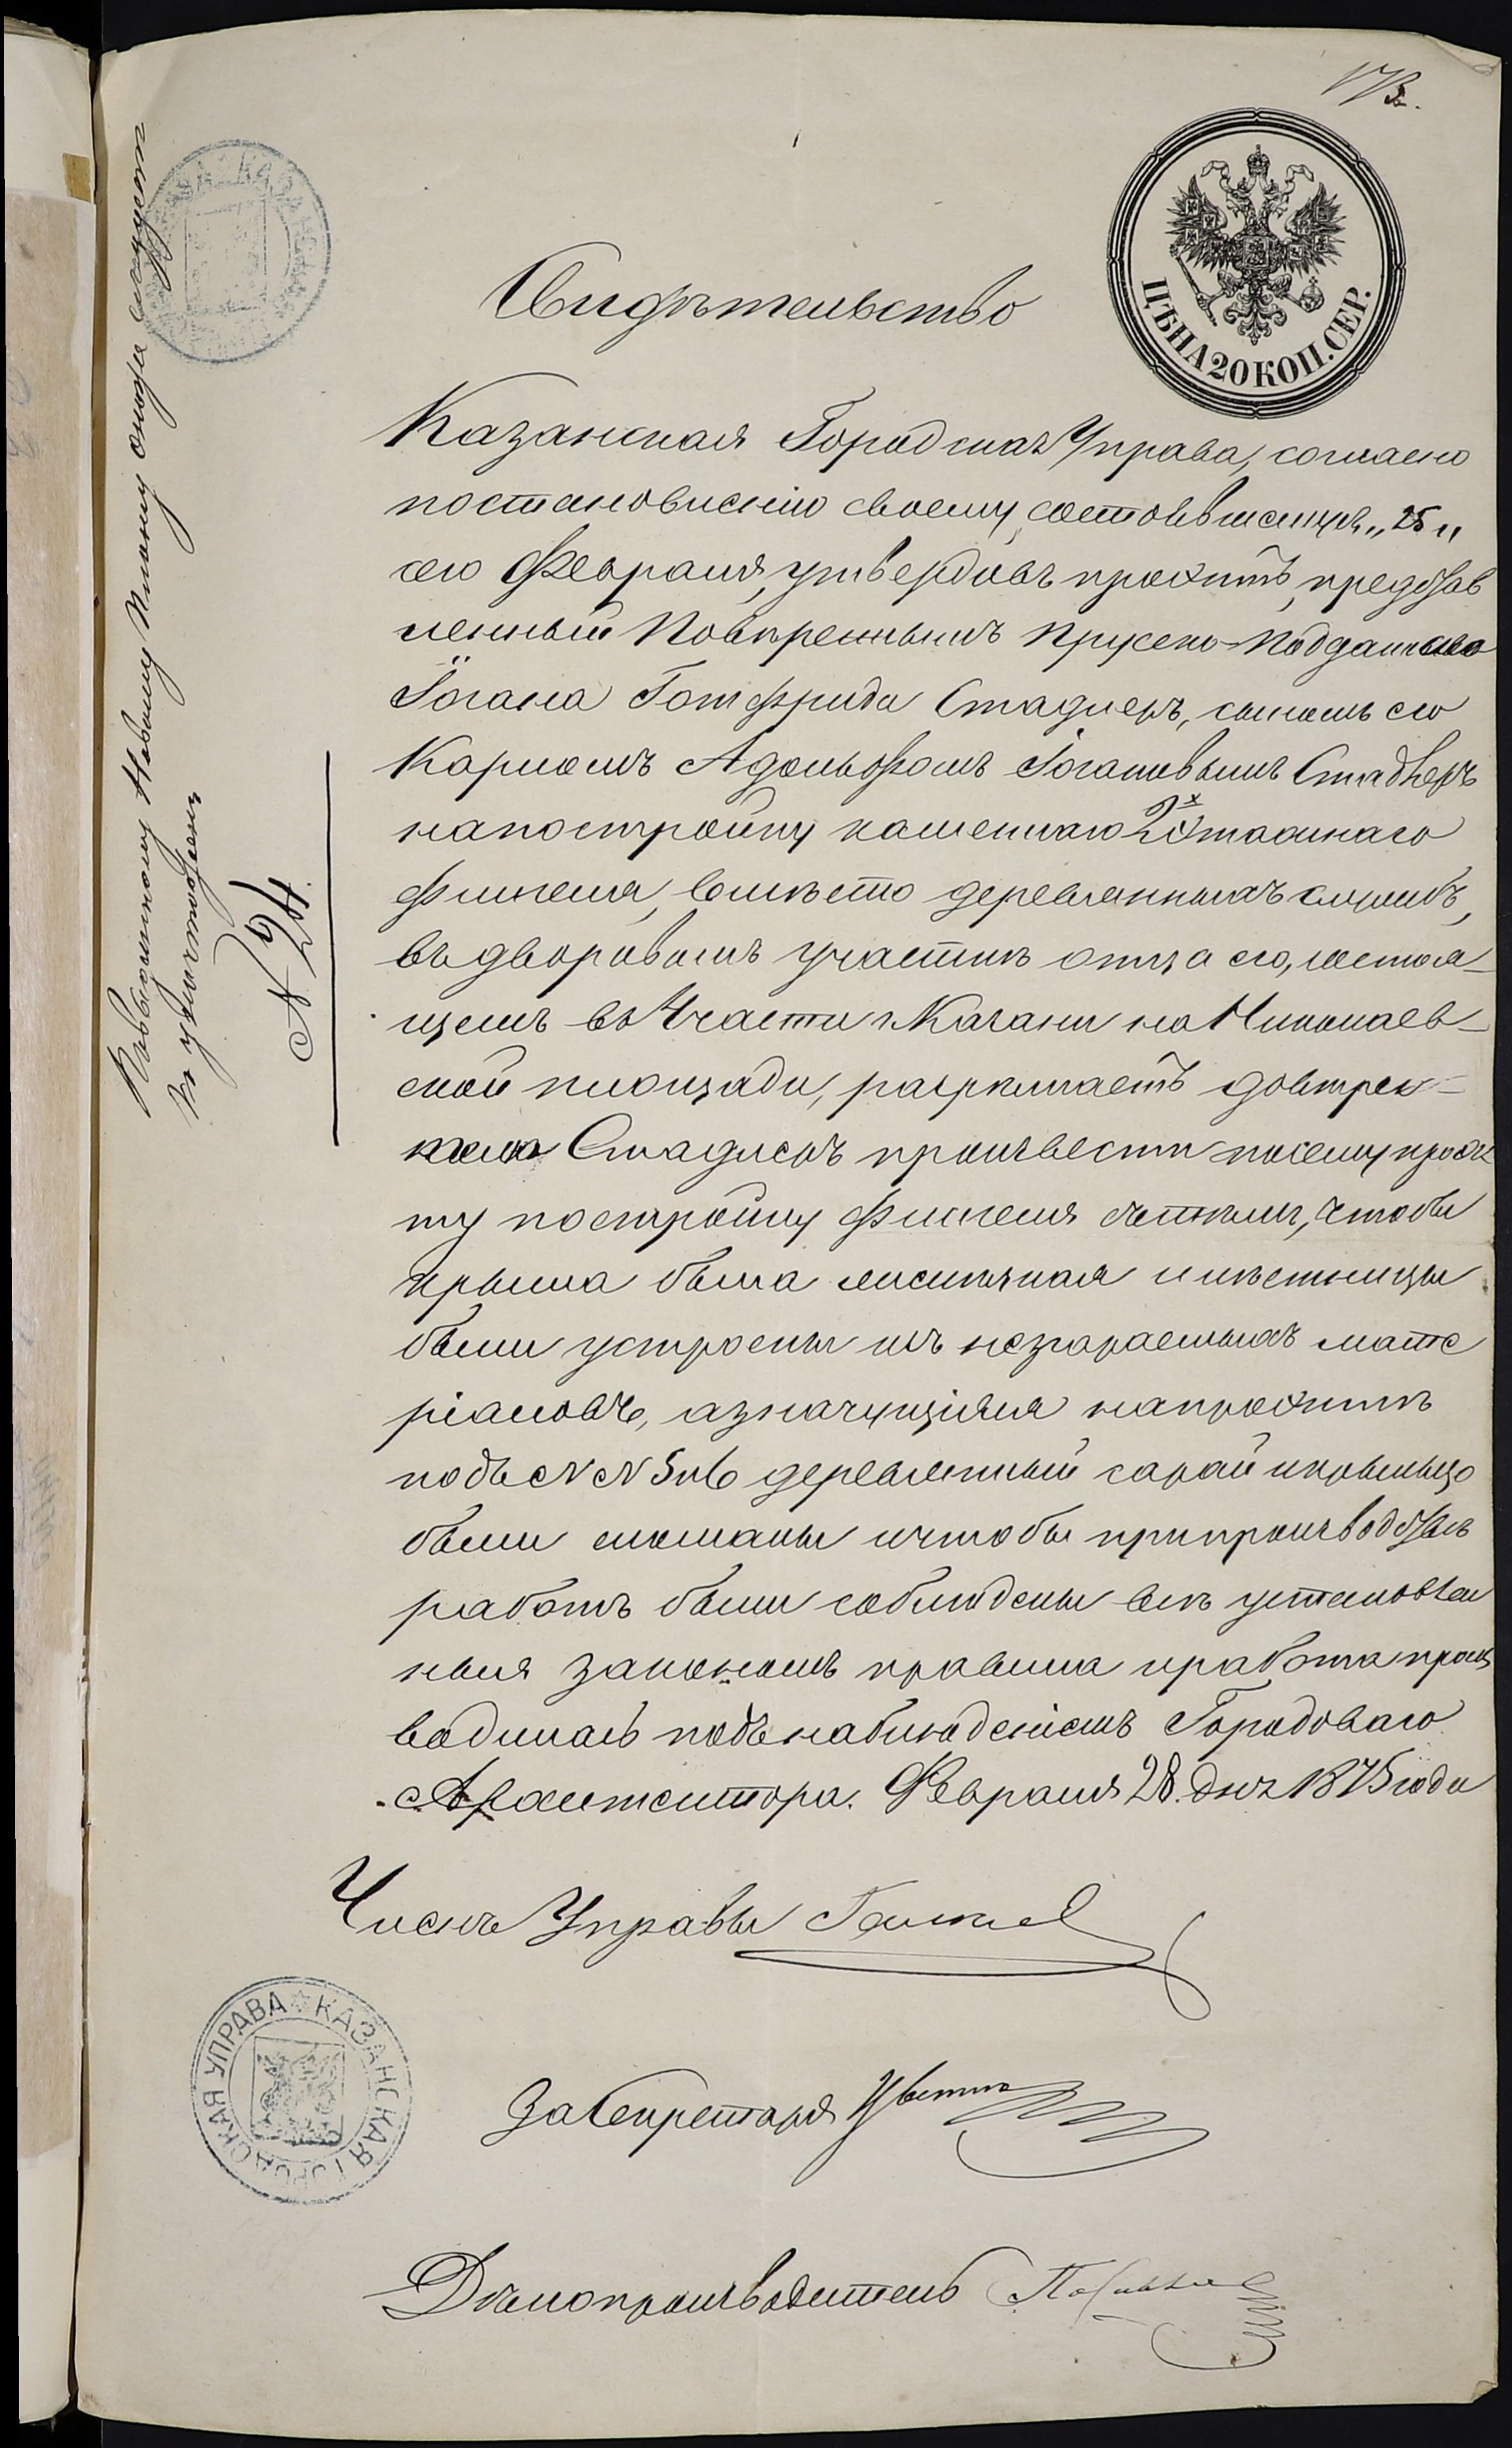 Свидѣтельство
ЦѢНА 20 КОП. СЕР.
Казанская Городская Управа, согласно
постановленію своему, состоявшемуся „25„
сего Февраля, утвердивъ проэктъ, представ
ленный Повѣреннымъ Прусско-Подданнаго
Іогана Готфрида Стадлеръ, сыномъ его
Карломъ Адольфомъ Іогановымъ Стадлеръ
на постройку каменнаго 2х этажнаго
флигеля, вмѣсто деревянныхъ службъ,
въ дворовомъ участкѣ отца его, состоя-
щемъ въ части г. Казани на Николаев-
ской площади, разрѣшаетъ довѣрен-
Стадлеръ произвести по сему проэк
ту постройку флигеля съ тѣмъ, чтобы
крыша была желѣзная и лѣстницы
были устроены изъ незгараемыхъ мате
ріаловъ, а значущіяся на проэктѣ
подъ N N 5 и 6 деревянный сарай и крыльцо
были сломаны и чтобы при производствѣ
работъ были соблюдены всѣ установлен
ныя закономъ правила и работа произ
водилась подъ наблюденіемъ Городоваго
Архитектора. Февраля 28 дня 1875 года
Членъ Управы
За Секретаря
Дѣлопроизводитель
КАЗАНСКАЯ ГОРОДСКАЯ УПРАВА
Къ высланному Новому Плану
N 24.